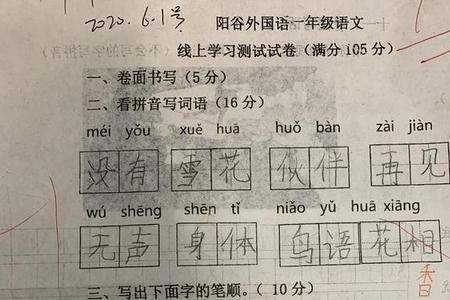 2020.6.1号
阳谷外国语一年级语文
线上学习测试试卷（满分105分）
一、卷面书写（5分）
二、看拼音写词语（16分）
méi yǒu xuě huā huǒ bàn zài jiàn
没有 雪花 伙伴 再见
wú shēng shēn tǐ niǎo yǔ huā xiāng
无声 身体 鸟语花相
香
三、写出下面字的笔顺。（10分）